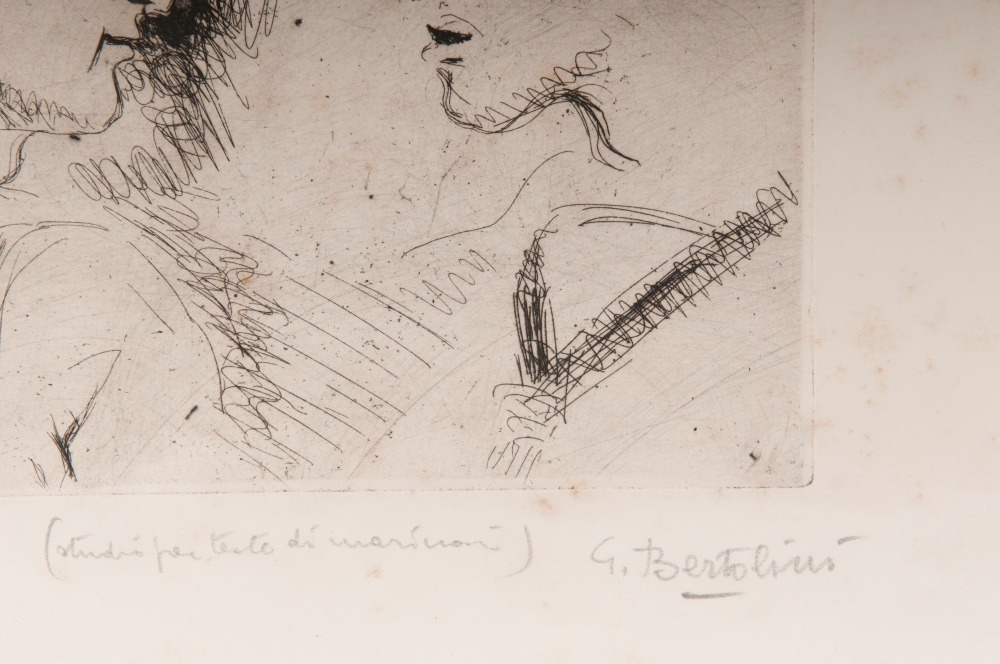 (studio per teste di marinai)
G. Bertolini